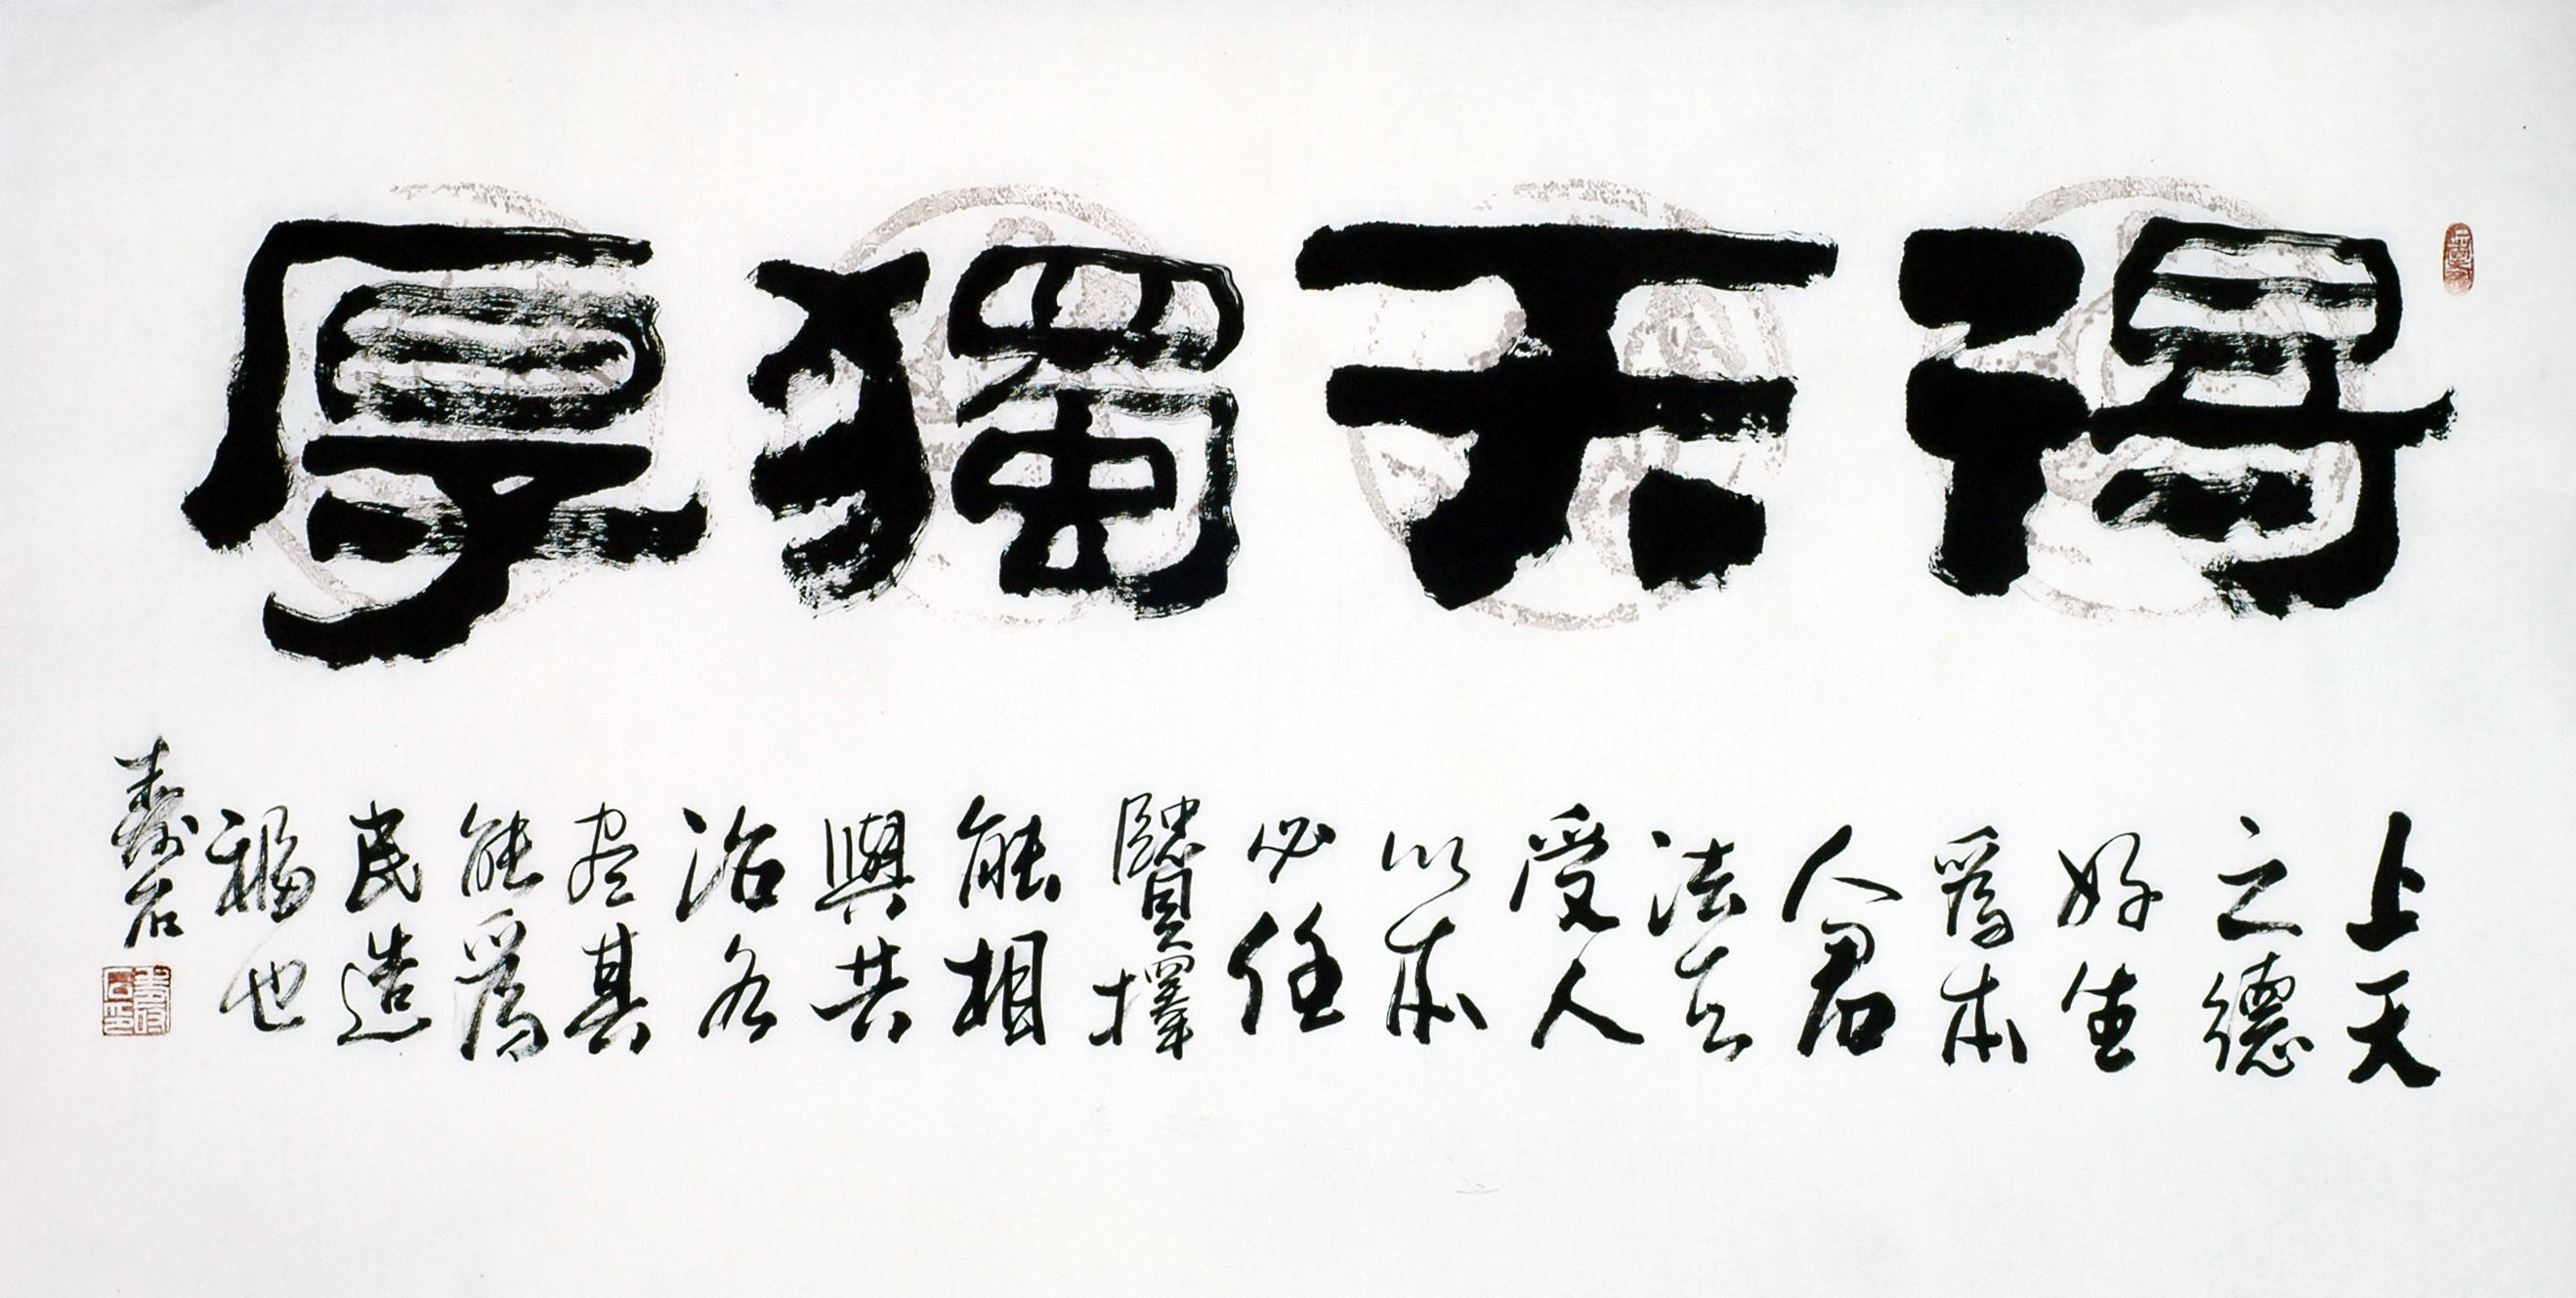 得天獨厚
上天
之德
好生
爲本
人君
法天
受人
以本
必任
賢擇
能相
與共
治各
盡其
能爲
民造
福也
壽石